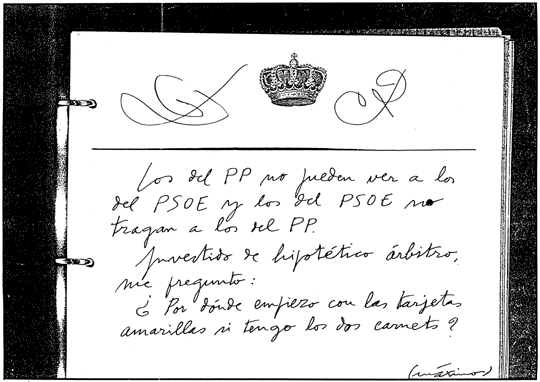 Los del PP no pueden ver a los
del PSOE y los del PSOE no
tragan a los del PP.
Investido de hipotético árbitro,
me pregunto:
¿Por dónde empiezo con las tarjetas
amarillas si tengo los dos carnets?
(máximo)